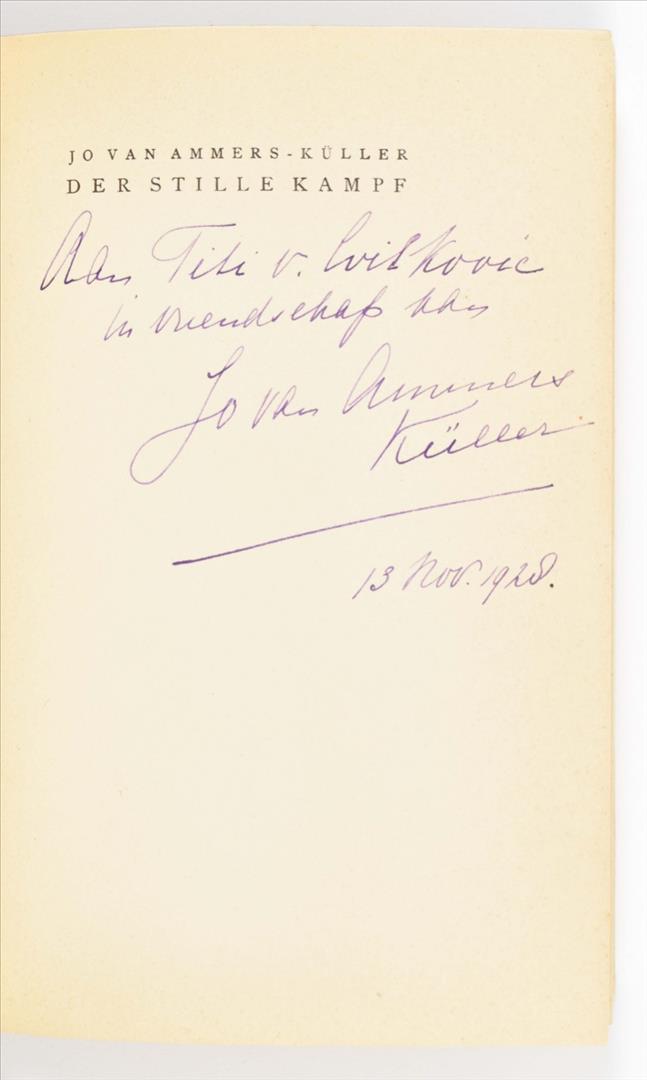 JO VAN AMMERS-KÜLLER
DER STILLE KAMPF
Aan Titi v.
in vriendschap van
Jo van Ammers
Küller
13 Nov. 1928.